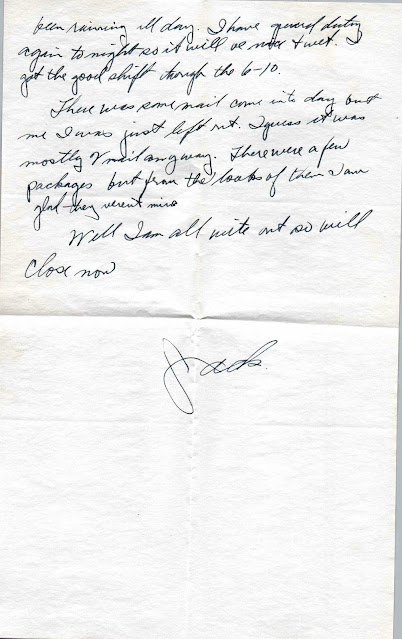 been raining all day. I have guard duty
again tonight so it will be nice & wet. I
got the good shift though the 6-10.
There was some mail come into day but
me I was just left out. I guess it was
mostly V mail anyway. There were a few
packages but from the looks of them I am
glad they weren't mine
Well I am all write out so will
close now
Jack.